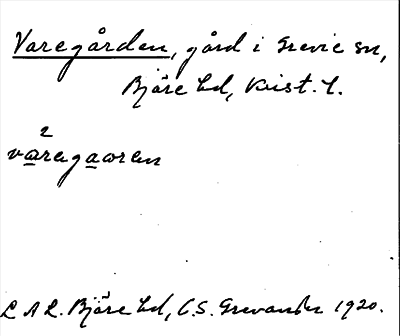 Varegården, gård i Grevie sn,
Bjäre hd, Krist. l.
2
varegaaren
L A L. Bjäre hd, C.S. Grevander 1920.